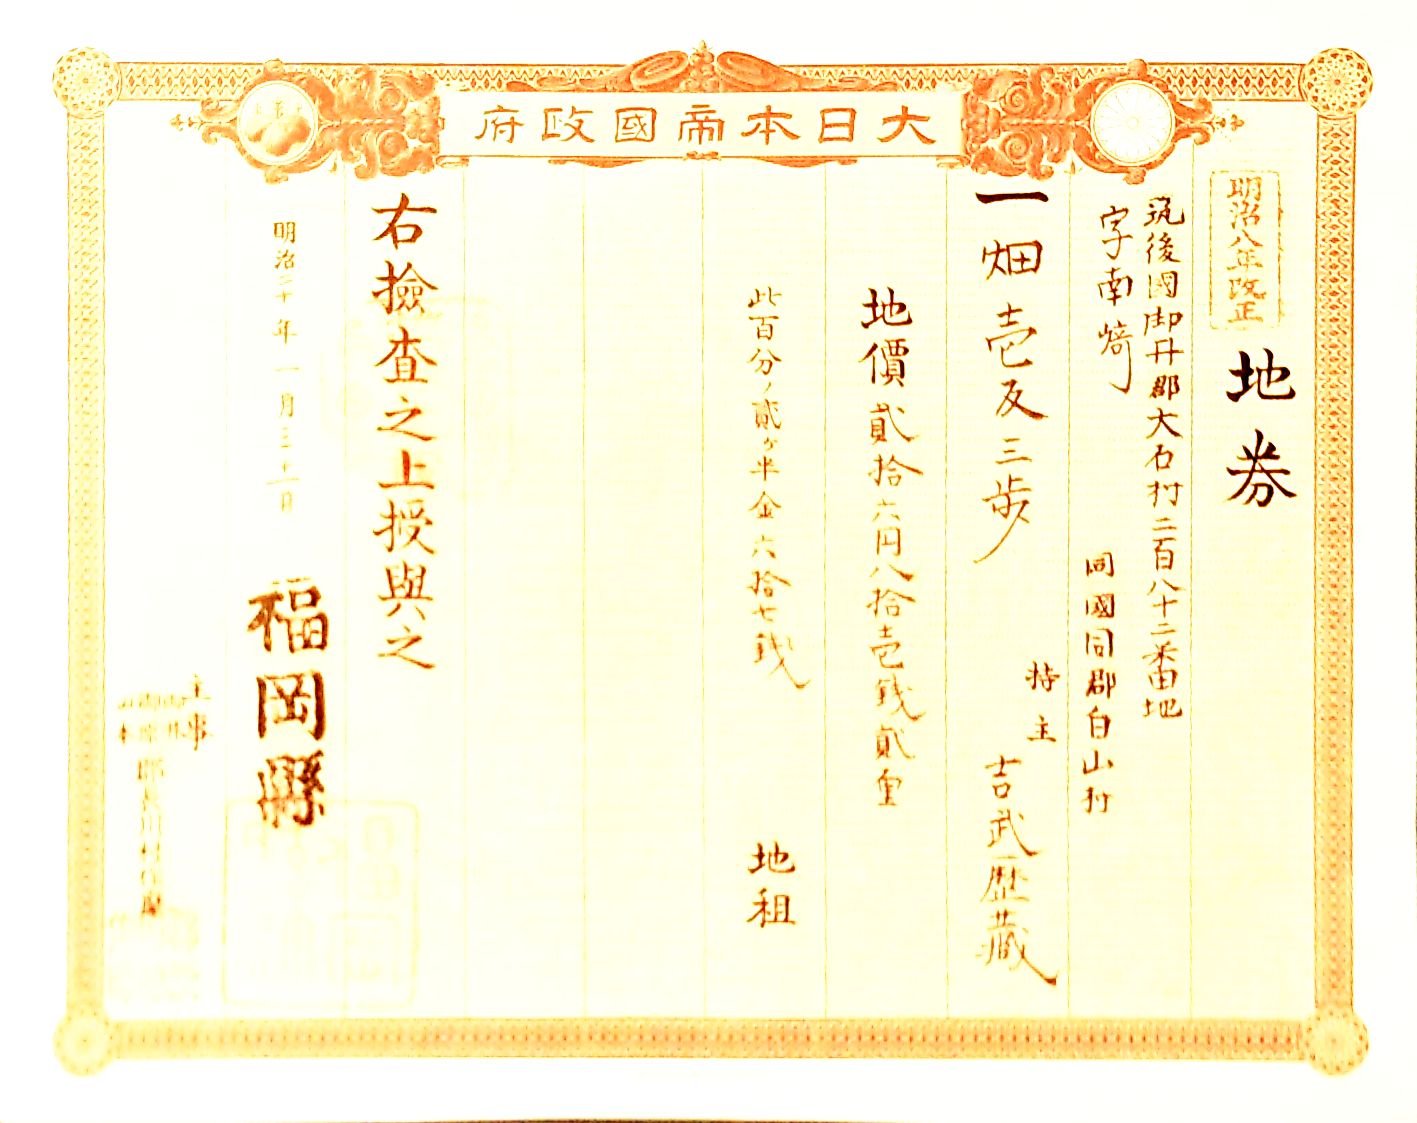 大日本帝國政府
明治八年改正
地券
筑後國御井郡大石村二百八十二番地
字南﨑
同國同郡白山村
一畑壱反三歩
持主
吉武歴藏
地價貳拾六円八拾壱銭貳厘
此百分ノ貳ヶ半金六拾七銭
地租
右撿査之上授與之
明治二十年一月三十一日
福岡縣
主事